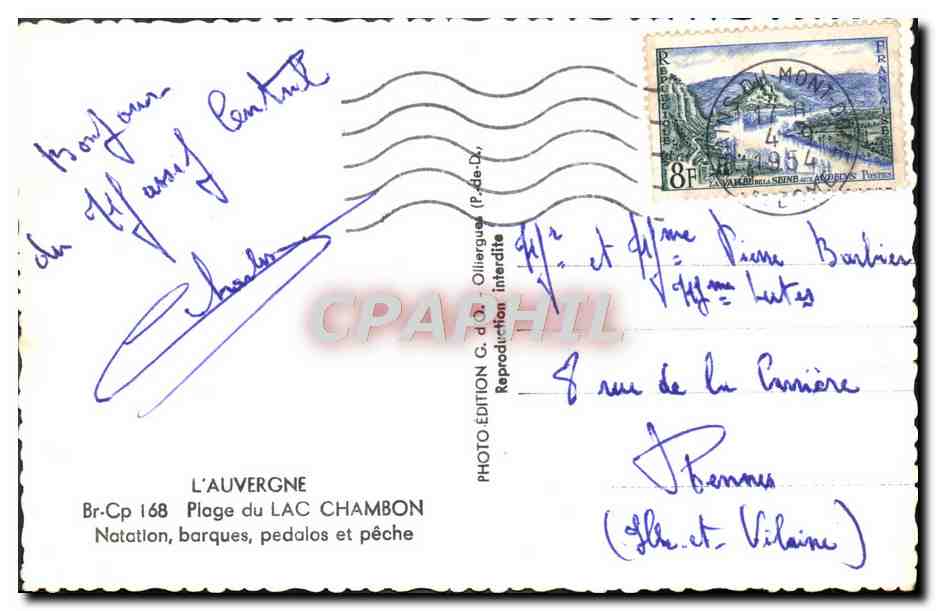 Bonjour
du Massif Central
L'AUVERGNE
Br-Cp 168 Plage du LAC CHAMBON
Natation, barques, pedalos et pêche
PHOTO-ÉDITION G. d'O. - Olliergues (P.-de-D.)
Reproduction interdite
CPAPHIL
RÉPUBLIQUE
FRANÇAISE
8F
LA VALLÉE DE LA SEINE AUX ANDELYS POSTES
DU MONT D
17
4
1954
Mr et Mme Pierre Barbier
Mme
8 rue de la Carrière
Rennes
(Ille-et-Vilaine)